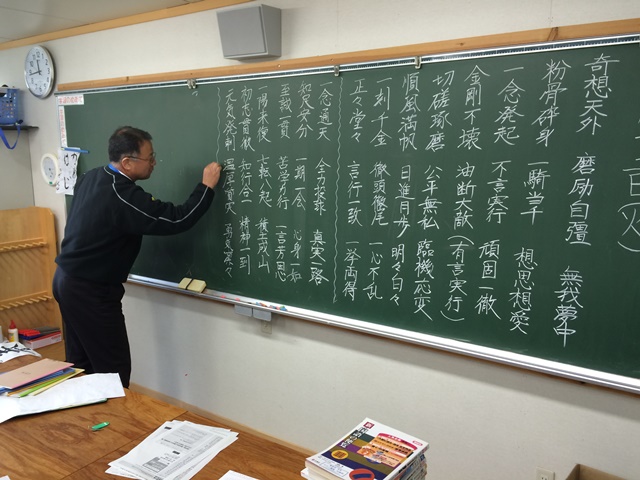 奇想天外 磨励自彊 無我夢中
粉骨砕身 一騎当千 想思想愛
一念発起 不言実行 頑固一徹
金剛不壊 油断大敵 (有言実行)
切磋琢磨 公平無私 臨機応変
順風満帆 日進月歩 明々白々
一刻千金 徹頭徹尾 一心不乱
正々堂々 言行一致 一挙両得
一念通天 全力投球 真実一路
知足安分 一期一会 心身一如
至誠一貫 苦学力行 一言芳恩
一陽来復 七転八起 積土成山
初志貫徹 知行合一 精神一到
元気溌剌 温厚篤実